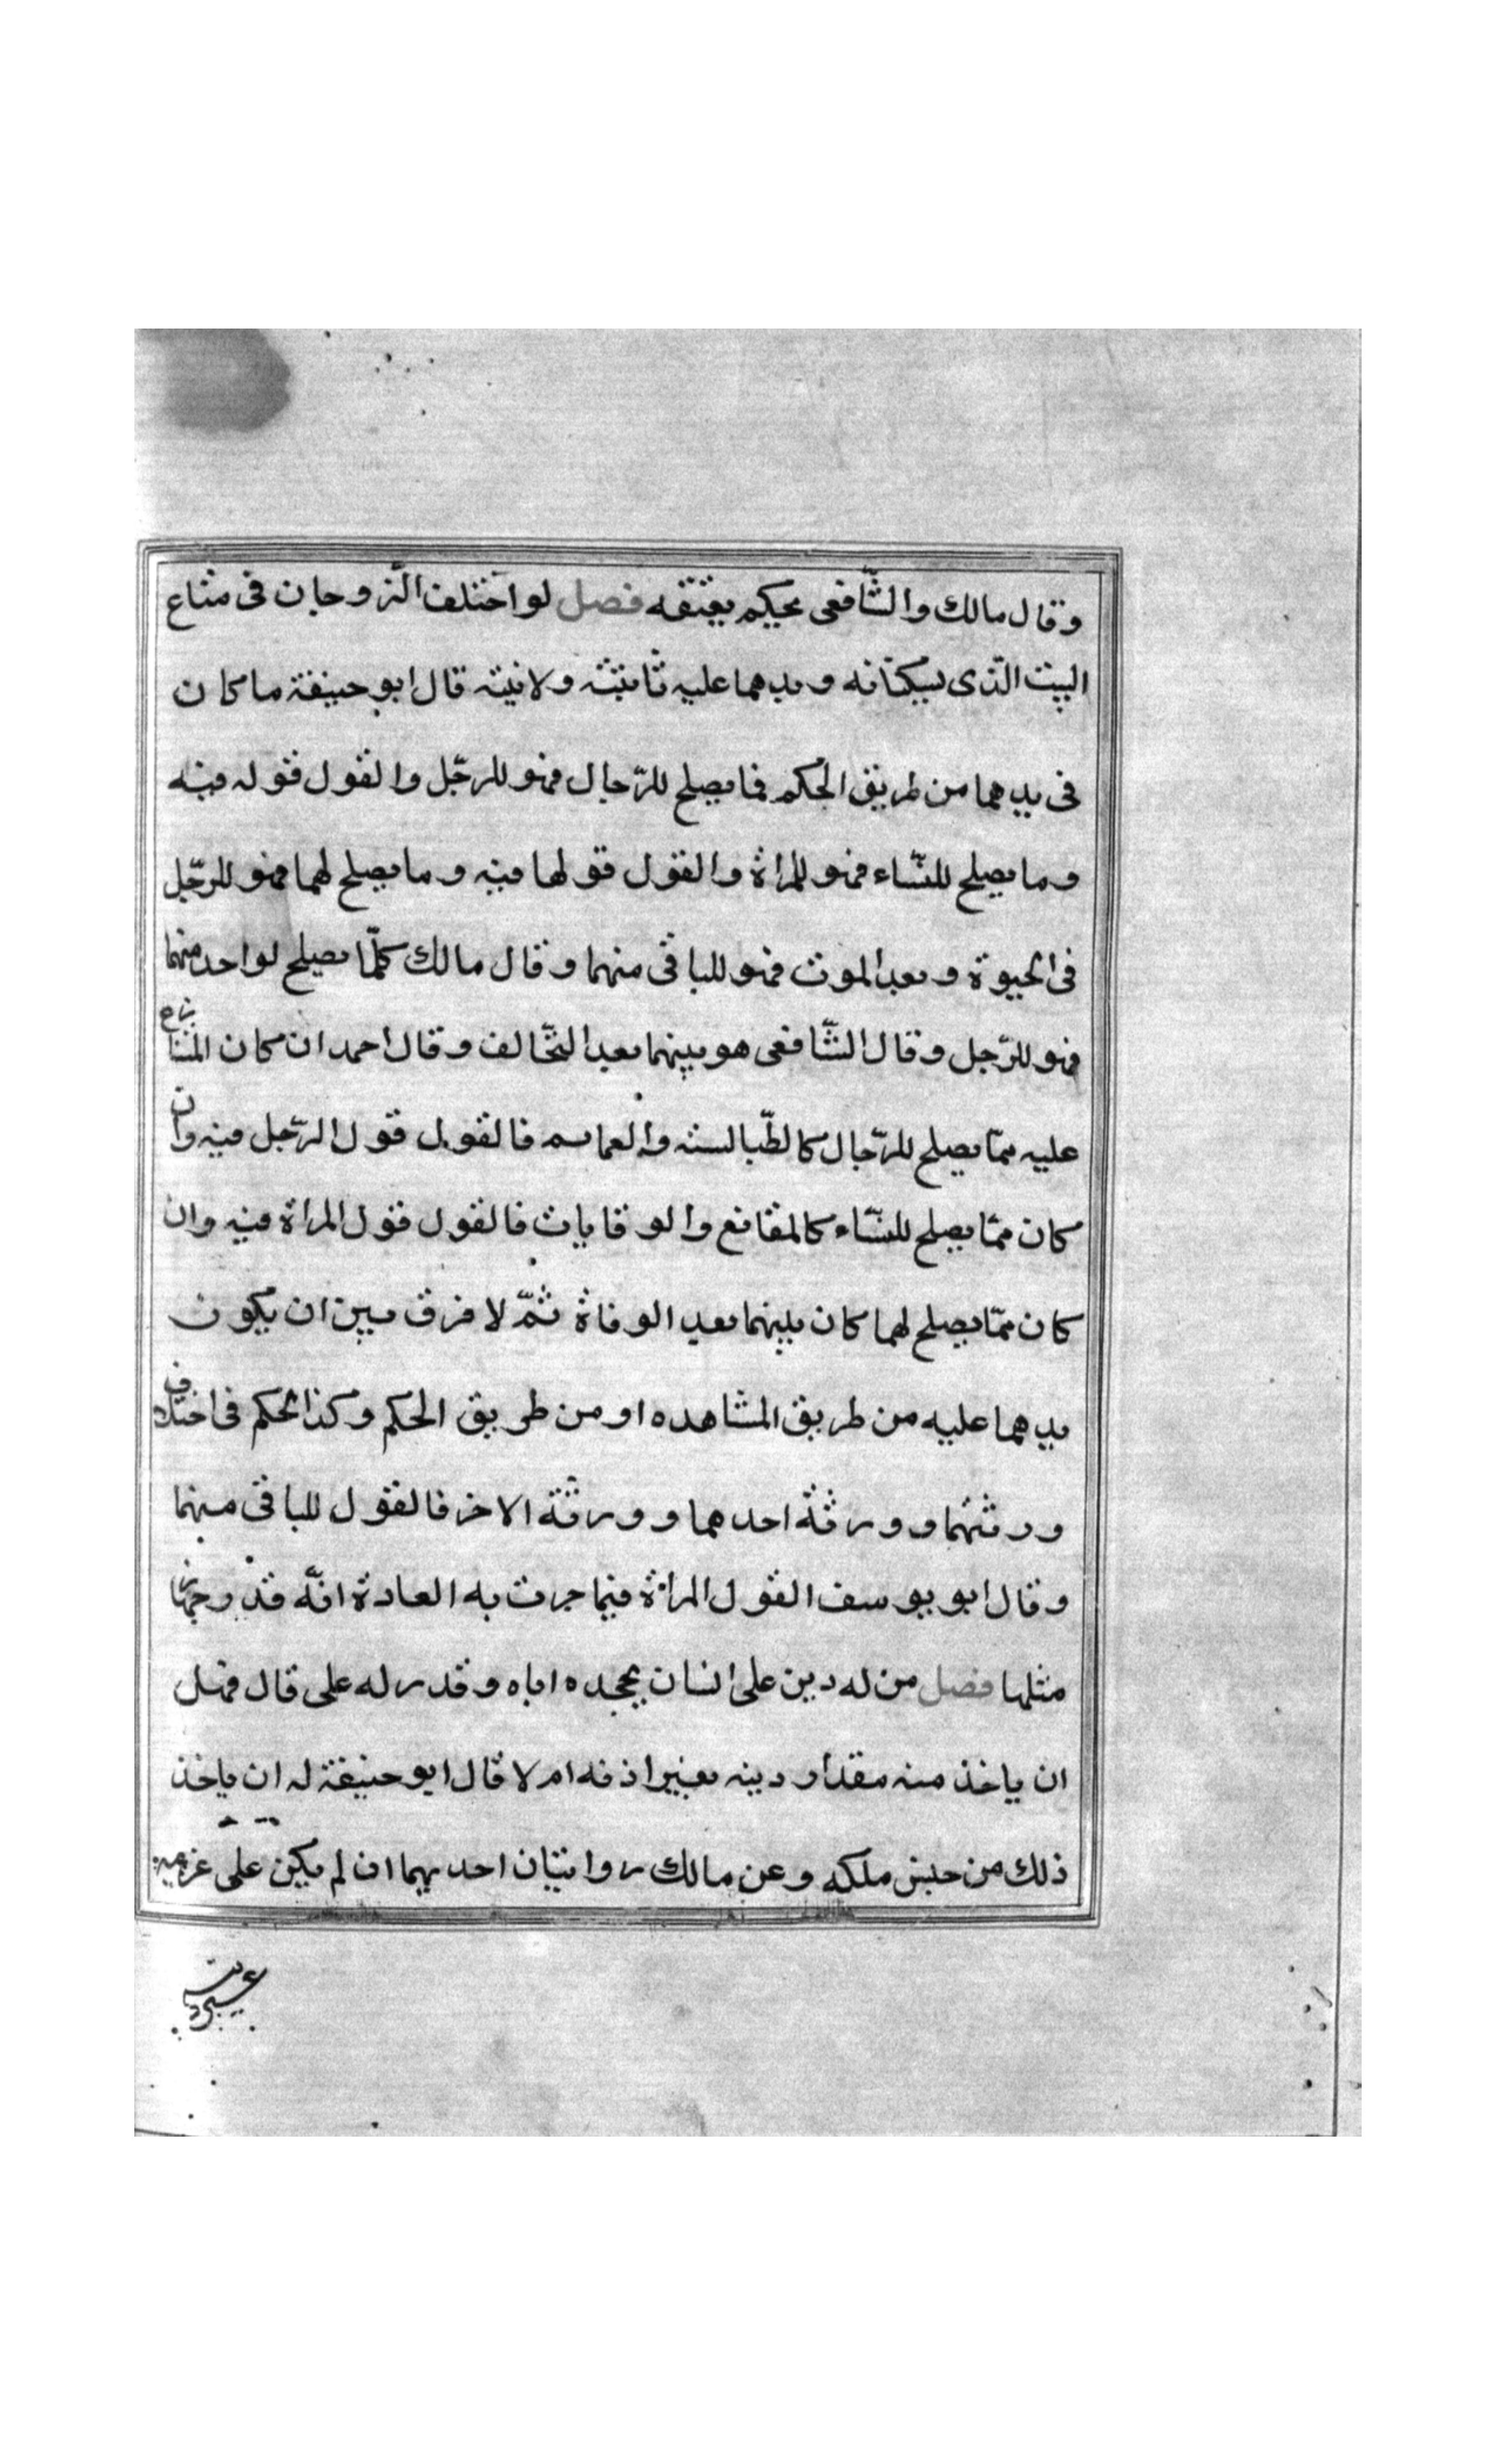 وقال مالك والشّافعى يحكم بعتقه فصل لو اختلف الزّوجان فى متاع
البيت الّذى يسكنانه ويدهما عليه ثابتة ولا بيّنة قال ابو حنيفة ما كان
فى يدهما من طريق الحكم فما يصلح للرّجال فهو للرجّل والقول قوله فيه
وما يصلح للنسّاء فهو للمراة والقول قولها فيه وما يصلح لهما فهو للرجّل
فى الحيوة وبعد الموت فهو للباقى منهما وقال مالك كلّما يصلح لواحد منهما
فهو للرّجل وقال الشّافعى هو بينهما بعد التحّالف وقال احمد ان كان المتنازع
عليه ممّا يصلح للرّجال كالطّيالسة والعمايم فالقول قول الرّجل فيه وان
كان ممّا يصلح للنسّاء كالمقانع والوقايات فالقول قول المراة فيه وان
كان ممّا يصلح لهما كان بينهما بعد الوفاة ثمّ لا فرق بين ان يكون
يدهما عليه من طريق المشاهده او من طريق الحكم وكذا الحكم فى اختلاف
ورثتهما وورثة احدهما وورثة الاخر فالقول للباقى منهما
وقال ابو يوسف القول المراة فيما جرت به العادة انّه قدر جهاز
مثلها فصل من له دين على انسان يجحده اياه وقدر له على قال فهل
ان ياخذ منه مقدار دينه بغير اذنه ام لا قال ابو حنيفة له ان ياخذ
ذلك من جنس ملكه وعن مالك روايتان احديهما ان لم يكن على غريمه